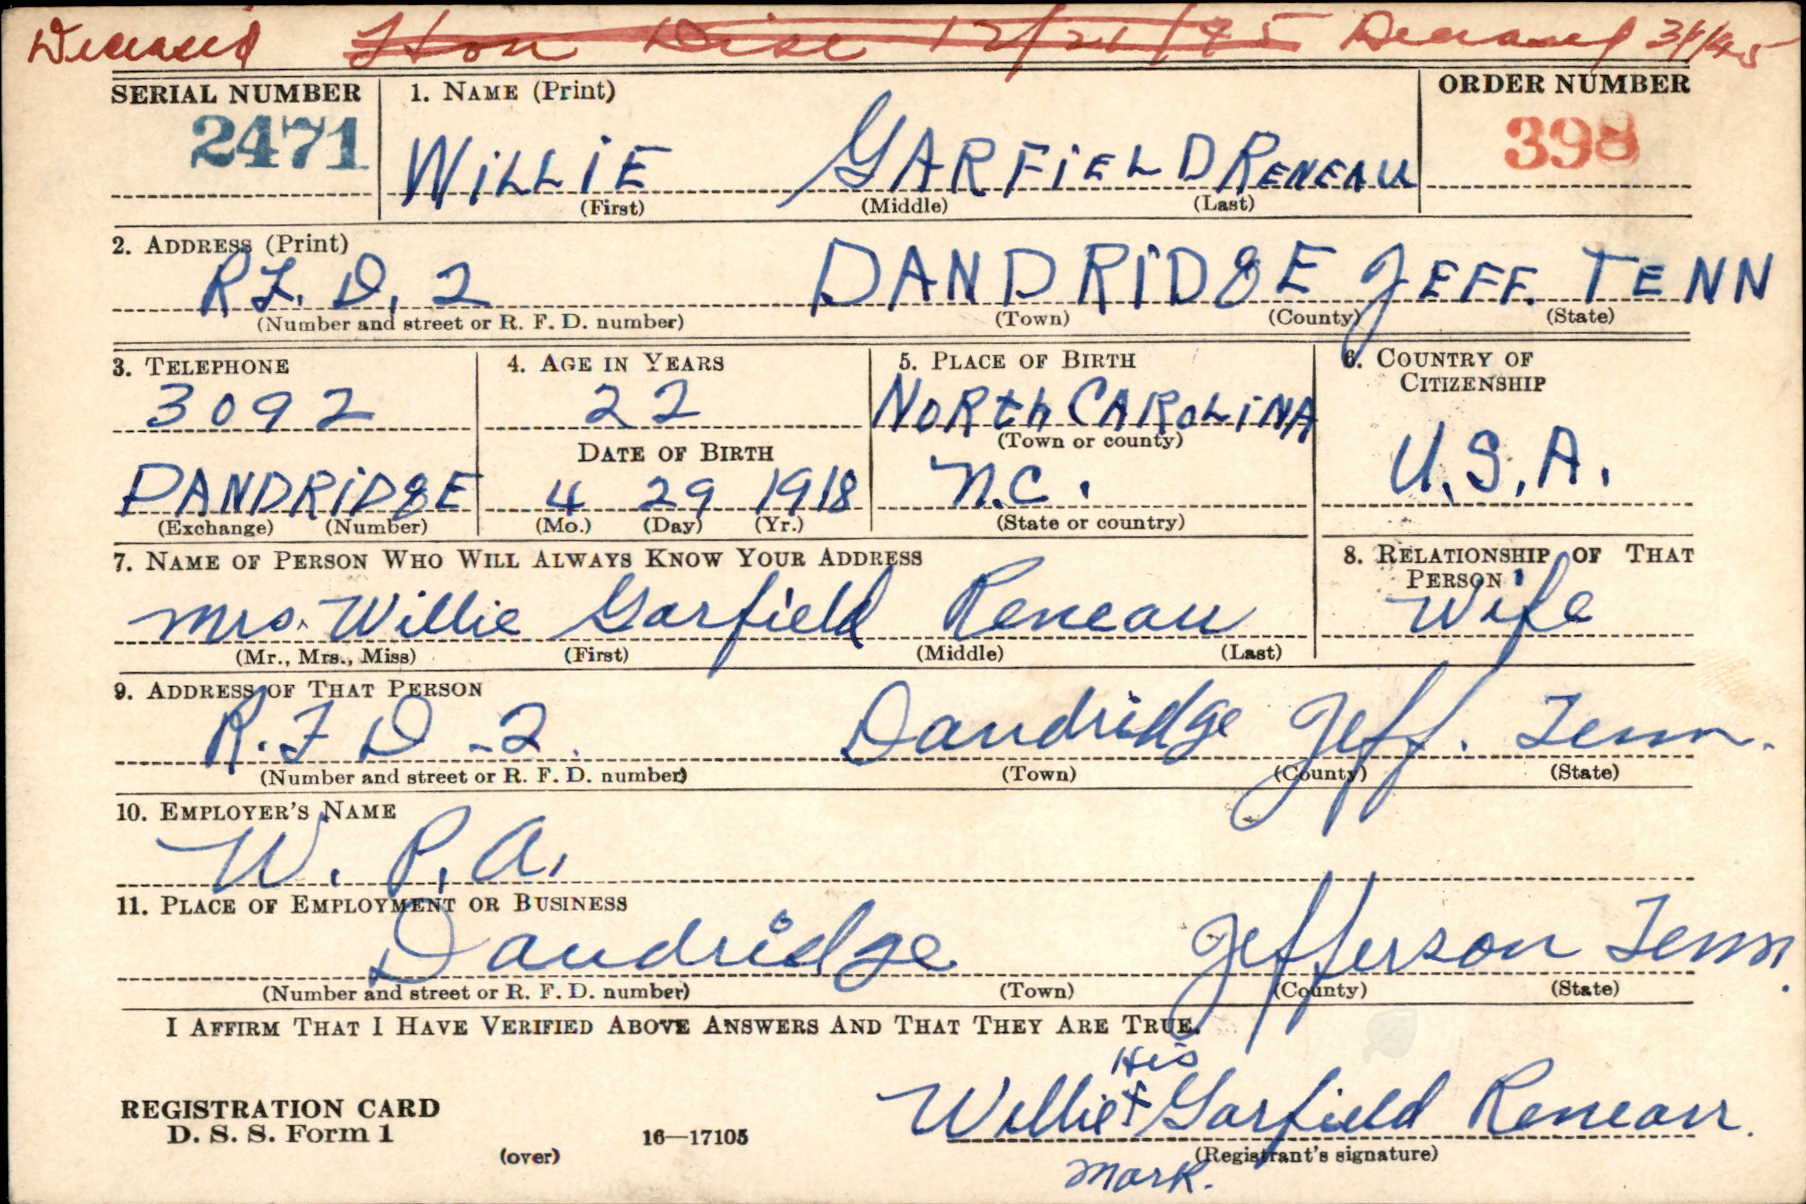 Deceased Hon Disc 12/21/45 Deceased 3/1/45
SERIAL NUMBER 1. NAME (Print) ORDER NUMBER
2471 WiLLiE GARFiELD RENEAU 398
(First) (Middle) (Last)
2. ADDRESS (Print)
R.F.D. 2 DANDRiDgE JEFF. TENN
(Number and street or R. F. D. number) (Town) (County) (State)
3. TELEPHONE 4. AGE IN YEARS 5. PLACE OF BIRTH 6. COUNTRY OF CITIZENSHIP
3092 22 NoRth CARoLiNA
DATE OF BIRTH (Town or county)
DANDRiDgE 4 29 1918 N.C. U.S.A.
(Exchange) (Number) (Mo.) (Day) (Yr.) (State or country)
7. NAME OF PERSON WHO WILL ALWAYS KNOW YOUR ADDRESS 8. RELATIONSHIP OF THAT PERSON
Mrs. Willie Garfield Reneau Wife
(Mr., Mrs., Miss) (First) (Middle) (Last)
9. ADDRESS OF THAT PERSON
R.F D -2. Dandridge Jeff. Tenn.
(Number and street or R. F. D. number) (Town) (County) (State)
10. EMPLOYER'S NAME
W. P. A.
11. PLACE OF EMPLOYMENT OR BUSINESS
Dandridge Jefferson Tenn.
(Number and street or R. F. D. number) (Town) (County) (State)
I AFFIRM THAT I HAVE VERIFIED ABOVE ANSWERS AND THAT THEY ARE TRUE.
His
REGISTRATION CARD Willie X Garfield Reneau.
D. S. S. Form 1 16—17105 (Registrant's signature)
(over) Mark.